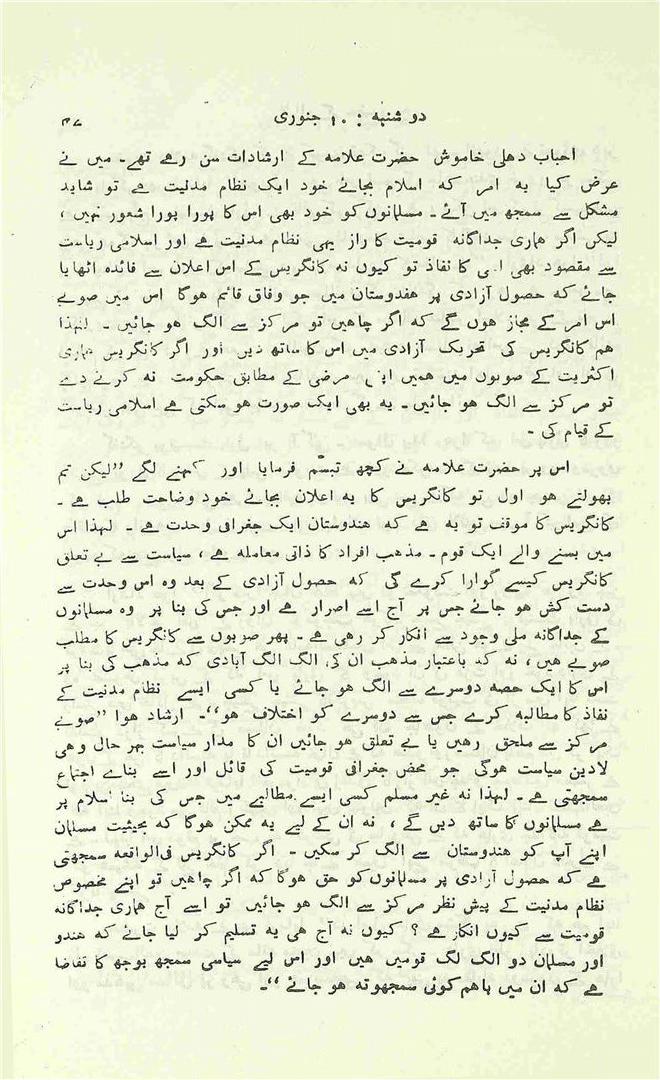 دو شنبه : ۱۰ جنوری ۴۷
احباب دهلی خاموش حضرت علامه کے ارشادات سن رہے تھے۔ میں نے
عرض کیا یه امر که اسلام بجائے خود ایک نظام مدنیت ہے تو شاید
مشکل سے سمجھ میں آئے۔ مسلمانوں کو خود بھی اس کا پورا پورا شعور نہیں ،
لیکن اگر هماری جداگانه قومیت کا راز یہی نظام مدنیت ہے اور اسلامی ریاست
سے مقصود بھی اسی کا نفاذ تو کیوں نه کانگریس کے اس اعلان سے فائدہ اٹھایا
جائے که حصول آزادی پر هندوستان میں جو وفاق قائم ہوگا اس میں صوبے
اس امر کے مجاز ہوں گے که اگر چاہیں تو مرکز سے الگ ہو جائیں۔ لہٰذا
ہم کانگریس کی تحریک آزادی میں اس کا ساتھ دیں اور اگر کانگریس هماری
اکثریت کے صوبوں میں ہمیں اپنی مرضی کے مطابق حکومت نه کرنے دے
تو مرکز سے الگ ہو جائیں۔ یه بھی ایک صورت ہو سکتی ہے اسلامی ریاست
کے قیام کی۔
اس پر حضرت علامه نے کچھ تبسّم فرمایا اور کہنے لگے ”لیکن تم
بھولتے ہو اول تو کانگریس کا یه اعلان بجائے خود وضاحت طلب ہے۔
کانگریس کا موقف تو یه ہے که هندوستان ایک جغرافی وحدت ہے۔ لہذا اس
میں بسنے والے ایک قوم۔ مذهب افراد کا ذاتی معامله ہے ، سیاست سے بے تعلق
کانگریس کیسے گوارا کرے گی که حصول آزادی کے بعد وہ اس وحدت سے
دست کش ہو جائے جس پر آج اسے اصرار ہے اور جس کی بنا پر وہ مسلمانوں
کے جداگانه ملی وجود سے انکار کر رہی ہے۔ پھر صوبوں سے کانگریس کا مطلب
صوبے ہیں، نه که باعتبار مذهب ان کی الگ الگ آبادی که مذهب کی بنا پر
اس کا ایک حصه دوسرے سے الگ ہو جائے یا کسی ایسے نظام مدنیت کے
نفاذ کا مطالبه کرے جس سے دوسرے کو اختلاف ہو“۔ ارشاد ہوا ”صوبے
مرکز سے ملحق رہیں یا بے تعلق ہو جائیں ان کا مدار سیاست بہر حال وہی
لادین سیاست ہوگی جو محض جغرافی قومیت کی قائل اور اسے بناے اجتماع
سمجھتی ہے۔ لہذا نه غیر مسلم کسی ایسے مطالبے میں جس کی بنا اسلام پر
ہے مسلمانوں کا ساتھ دیں گے ، نه ان کے لیے یه ممکن ہوگا که بحیثیت مسلمان
اپنے آپ کو هندوستان سے الگ کر سکیں۔ اگر کانگریس فی الواقعه سمجھتی
ہے که حصول آزادی پر مسلمانوں کو حق ہوگا که اگر چاہیں تو اپنے مخصوص
نظام مدنیت کے پیش نظر مرکز سے الگ ہو جائیں تو اسے آج هماری جداگانه
قومیت سے کیوں انکار ہے ؟ کیوں نه آج ہی یه تسلیم کر لیا جائے که هندو
اور مسلمان دو الگ لگ قومیں ہیں اور اس لیے سیاسی سمجھ بوجھ کا تقاضا
ہے که ان میں باہم کوئی سمجھوته ہو جائے“۔